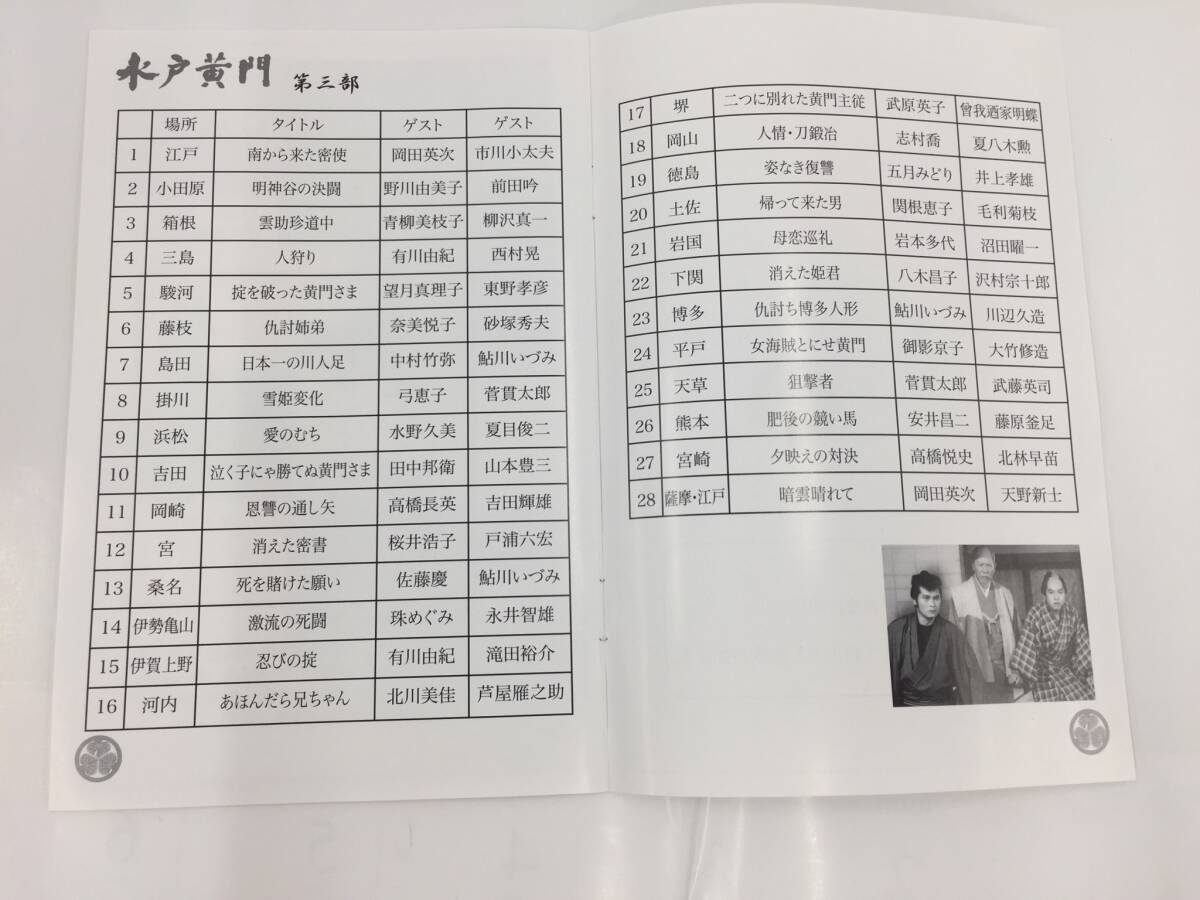 水戸黄門 第三部
場所 タイトル ゲスト ゲスト
1 江戸 南から来た密使 岡田英次 市川小太夫
2 小田原 明神谷の決闘 野川由美子 前田吟
3 箱根 雲助珍道中 青柳美枝子 柳沢真一
4 三島 人狩り 有川由紀 西村晃
5 駿河 掟を破った黄門さま 望月真理子 東野孝彦
6 藤枝 仇討姉弟 奈美悦子 砂塚秀夫
7 島田 日本一の川人足 中村竹弥 鮎川いづみ
8 掛川 雪姫変化 弓恵子 菅貫太郎
9 浜松 愛のむち 水野久美 夏目俊二
10 吉田 泣く子にゃ勝てぬ黄門さま 田中邦衛 山本豊三
11 岡崎 恩讐の通し矢 高橋長英 吉田輝雄
12 宮 消えた密書 桜井浩子 戸浦六宏
13 桑名 死を賭けた願い 佐藤慶 鮎川いづみ
14 伊勢亀山 激流の死闘 珠めぐみ 永井智雄
15 伊賀上野 忍びの掟 有川由紀 滝田裕介
16 河内 あほんだら兄ちゃん 北川美佳 芦屋雁之助
17 堺 二つに別れた黄門主従 武原英子 曾我廼家明蝶
18 岡山 人情・刀鍛冶 志村喬 夏八木勲
19 徳島 姿なき復讐 五月みどり 井上孝雄
20 土佐 帰って来た男 関根恵子 毛利菊枝
21 岩国 母恋巡礼 岩本多代 沼田曜一
22 下関 消えた姫君 八木昌子 沢村宗十郎
23 博多 仇討ち博多人形 鮎川いづみ 川辺久造
24 平戸 女海賊とにせ黄門 御影京子 大竹修造
25 天草 狙撃者 菅貫太郎 武藤英司
26 熊本 肥後の競い馬 安井昌二 藤原釜足
27 宮崎 夕映えの対決 高橋悦史 北林早苗
28 薩摩・江戸 暗雲晴れて 岡田英次 天野新士